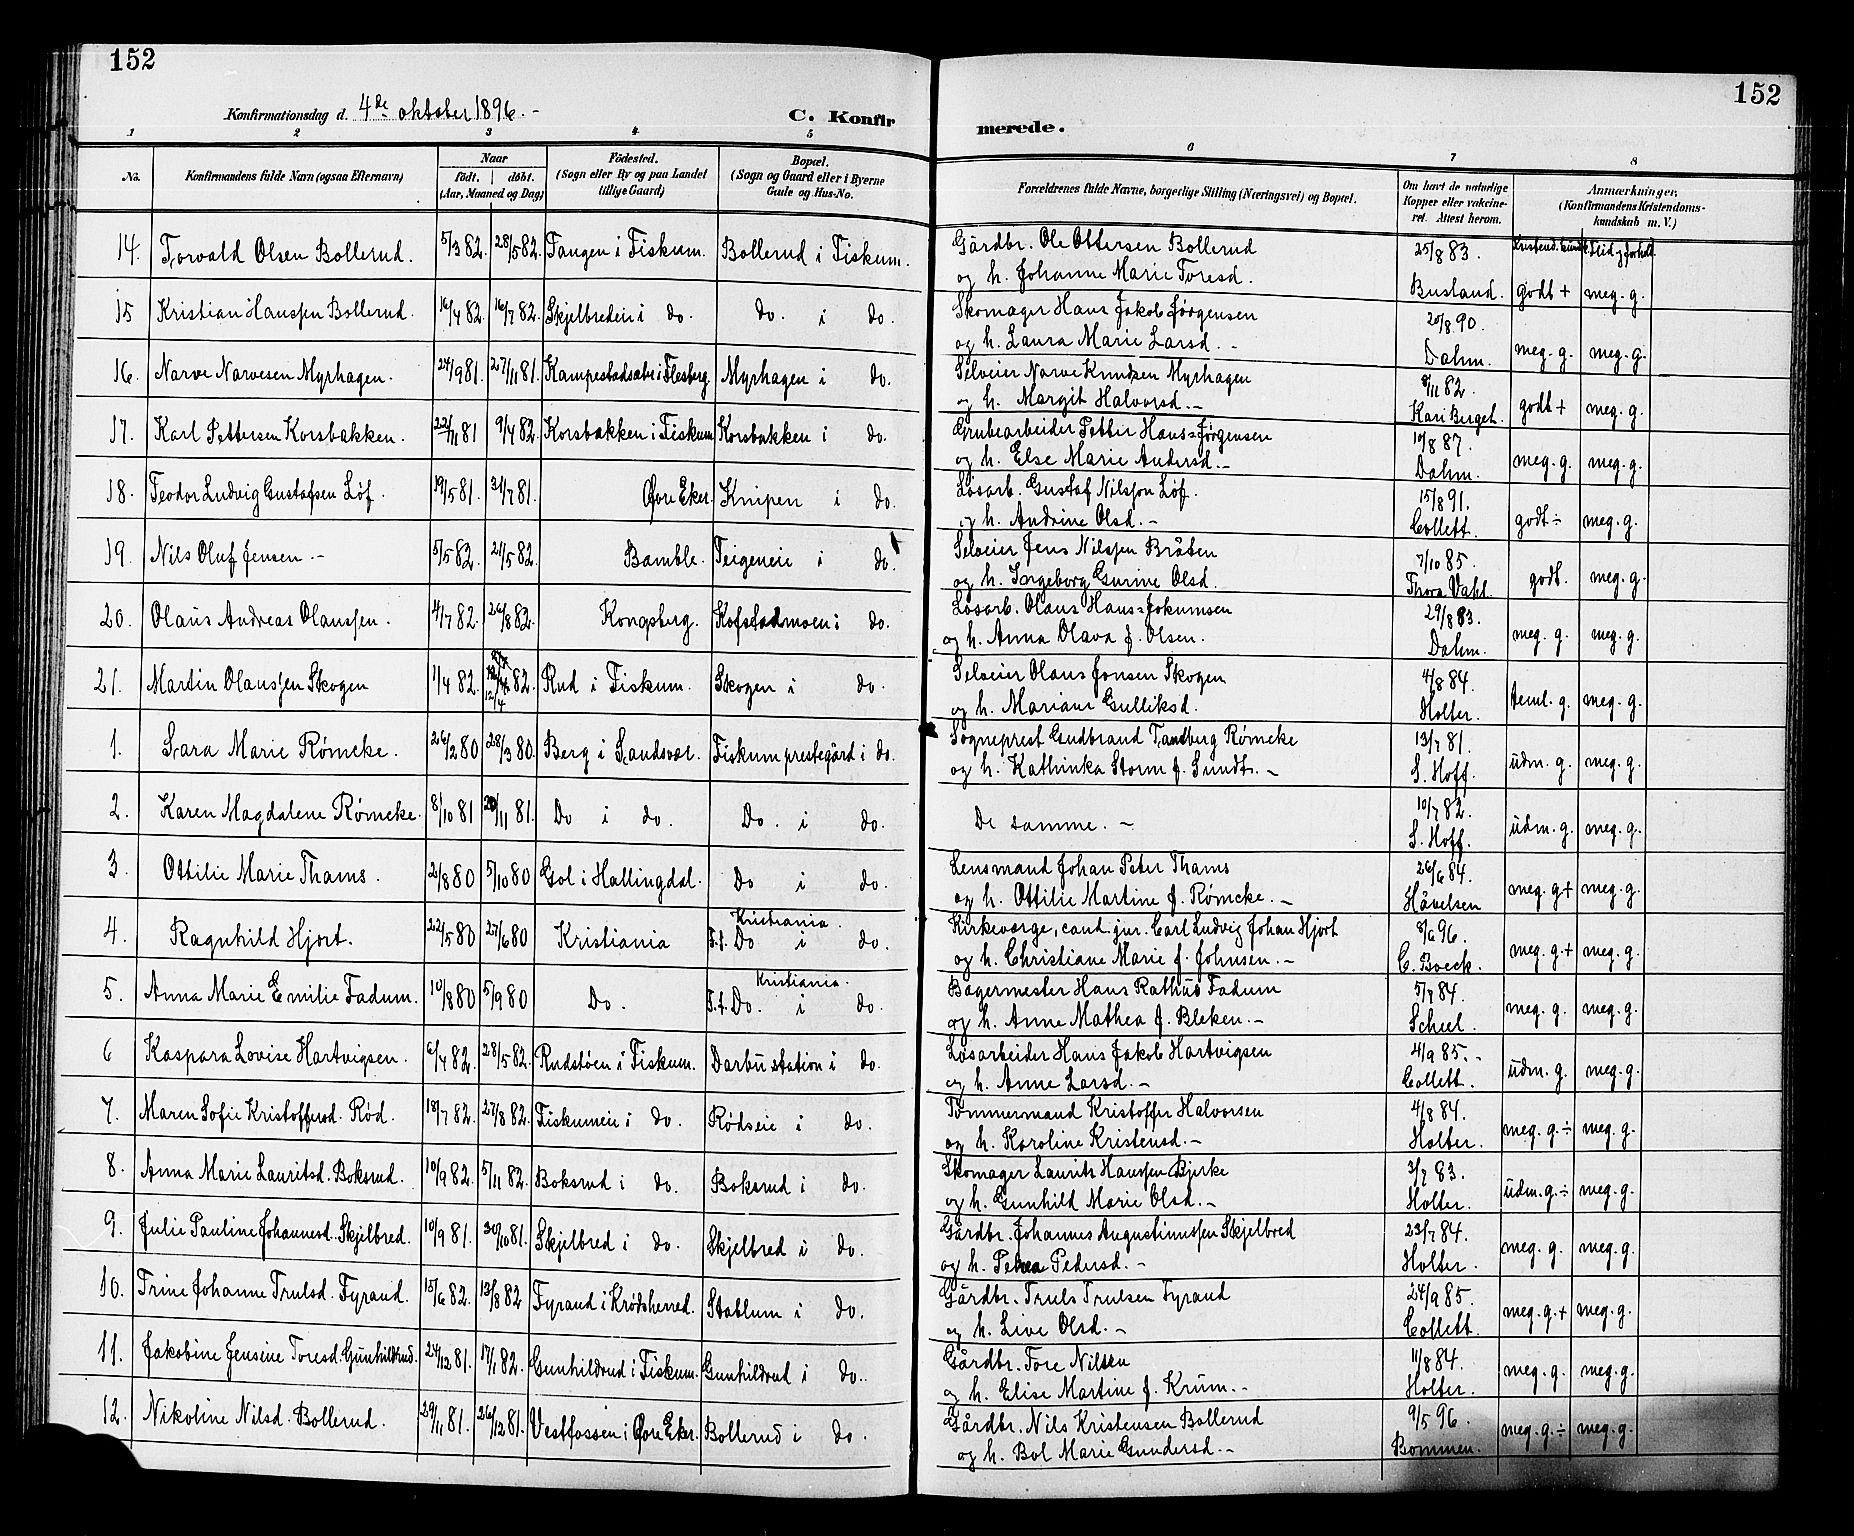 152
152
Konfirmationsdag d. 4de oktober 1896.-
C. Konfirmerede.
1 2 3 4 5 6 7 8
No.
Konfirmandens fulde Navn (ogsaa Efternavn)
Naar
födt. | döbt.
(Aar, Maaned og Dag)
Födested.
(Sogn eller By og paa Landet
tillige Gaard)
Bopæl.
(Sogn og Gaard eller i Byerne
Gade og Hus-No.
Forældrenes fulde Navne, borgerlige Stilling (Næringsvei) og Bopæl.
Om havt de naturlige
Kopper eller vakcine-
ret. Attest herom.
Anmærkninger.
(Konfirmandens Kristendoms-
kundskab m. V.)
14. Torvald Olsen Bollerud. 5/3 82. 28/5 82. Tangen i Fiskum. Bollerud i Fiskum. Gårdbr. Ole Ottersen Bollerud 25/8 83. Kristend. kundsk. Flid og forhold.
og h. Johanne Marie Toresd. Busland. godt + meg. g.
15 Kristian Hanssen Bollerud. 16/4 82. 16/7 82. Skjelbredeie i do. do. i do. Skomager Hans Jakob Jørgensen 20/8 90.
og h. Laura Marie Larsd. - Dahm. meg. g. meg. g.
16. Narve Narvesen Myrhagen. 24/9 81. 27/11 81. Kampestadsæter i Flesberg. Myrhagen i do. Selveier Narve Knudsen Myrhagen 8/11 82.
og h. Margit Halvorsd. - Kari Berget. godt + meg. g.
17. Karl Pettersen Korsbakken. 22/11 81 9/4 82. Korsbakken i Fiskum Korsbakken i do. Grubearbeider Petter Hans=Jørgensen 10/8 87.
og h. Else Marie Andersd. - Dahm. meg. g. meg. g.
18. Teodor Ludvig Gustafsen Löf. 19/5 81. 31/7 81. Øvre Eker. Knipen i do. Løsarb. Gustaf Nilsson Löf. 15/8 91.
og h. Andrine Olsd. - Collett. godt ÷ meg. g.
19. Nils Oluf Jensen. - 5/5 82. 21/5 82. Bamble. Teigeneie i do. Selveier Jens Nilssen Bråten 7/10 85.
og h. Ingeborg Gurine Olsd. Thora Vahl. godt. meg. g.
20. Olaus Andreas Olaussen. 4/7 82. 26/8 82. Kongsberg. Kofstadmoen i do. Løsarb. Olaus Hans=Jokumsen 29/8 83.
og h. Anna Olava f. Olsen. Dahm. meg. g. meg. g.
21. Martin Olaussen Skogen 1/4 82. 82. Rud i Fiskum. Skogen i do. Selveier Olaus Jonsen Skogen 4/8 84.
og h. Mariane Gulliksd. Holter. teml. g. meg. g.
1. Sara Marie Rømcke. 26/2 80 28/3 80. Berg i Sandsvær. Fiskum prestegård i do. Sogneprest Gudbrand Tandberg Rømcke 13/7 81.
og h. Kathinka Storm f. Sundt. - S. Hoff. udm. g. meg. g.
2. Karen Magdalene Rømcke. 8/10 81 20/11 81. Do i do. Do. i do. De samme. - 10/7 82.
S. Hoff. udm. g. meg. g.
3. Ottilie Marie Thams. 21/8 80 5/10 80 Gol i Hallingdal. Do i do. Lensmand Johan Peter Thams 26/6 84.
og h. Ottilie Martine f. Rømcke. - Håvelsen meg. g + meg. g.
4. Ragnhild Hjort. 22/5 80 27/6 80 Kristiania Kristiania. F.t. Do i do. Kirkeværge, cand. jur. Carl Ludvig Johan Hjort 8/6 96.
og h. Christiane Marie f. Johnsen. - C. Boeck. meg. g + meg. g.
5. Anna Marie Emilie Fadum. 10/8 80 5/9 80 Do. Kristiania. F.t. Do. i do. Bagermester Hans Rathus Fadum 5/7 84.
og h. Anne Mathea f. Bleken. - Scheel. meg. g. meg. g.
6 Kaspara Lovise Hartvigsen. 6/4 82. 28/5 82. Rudstøen i Fiskum. Darbu station i do. Løsarbeider Hans Jakob Hartvigsen 4/9 85. -
og h. Anne Larsd. - Collett. udm. g. meg. g.
7. Maren Sofie Kristoffersd. Rød. 18/7 82. 27/8 82. Fiskumeie i do. Rødseie i do. Tømmermand Kristoffer Halvorsen 4/8 84.
og h. Karoline Kristensd. - Holter. meg. g. ÷ meg. g.
8. Anna Marie Lauritsd. Boksrud. 10/9 82. 5/11 82. Boksrud i do. Boksrud i do. Skomager Laurits Hanssen Bjerke 3/7 83.
og h. Gunhild Marie Olsd. - Holter. udm. g. ÷ meg. g.
9. Julie Pauline Johannesd. Skjelbred. 10/9 81. 30/10 81. Skjelbred i do. Skjelbred i do. Gårdbr. Johannes Augustinussen Skjelbred 23/7 84.
og h. Petrea Pedersd. - Holter. meg. g. meg. g.
10. Trine Johanne Trulsd. Fyrand. 15/6 82. 13/8 82 Fyrand i Krødsherred. Stablum i do. Gårdbr. Truls Trulsen Fyrand 24/9 85.
og h. Live Olsd. - Collett. meg. g. + meg. g.
11. Jakobine Jensine Toresd. Gunhildrud. 24/12 81. 17/1 82. Gunhildrud i Fiskum. Gunhildrud i do. Gårdbr. Tore Nilsen 11/8 84.
og h. Elise Martine f. Krum. - Holter. meg. g. meg. g.
12. Nikoline Nilsd. Bollerud. 29/11 81. 26/12 81. Vestfossen i Øvre Eker. Bollerud i do. Gårdbr. Nils Kristensen Bollerud 9/5 96.
og h. Bol Marie Gundersd. - Bommen. meg. g. ÷ meg. g.